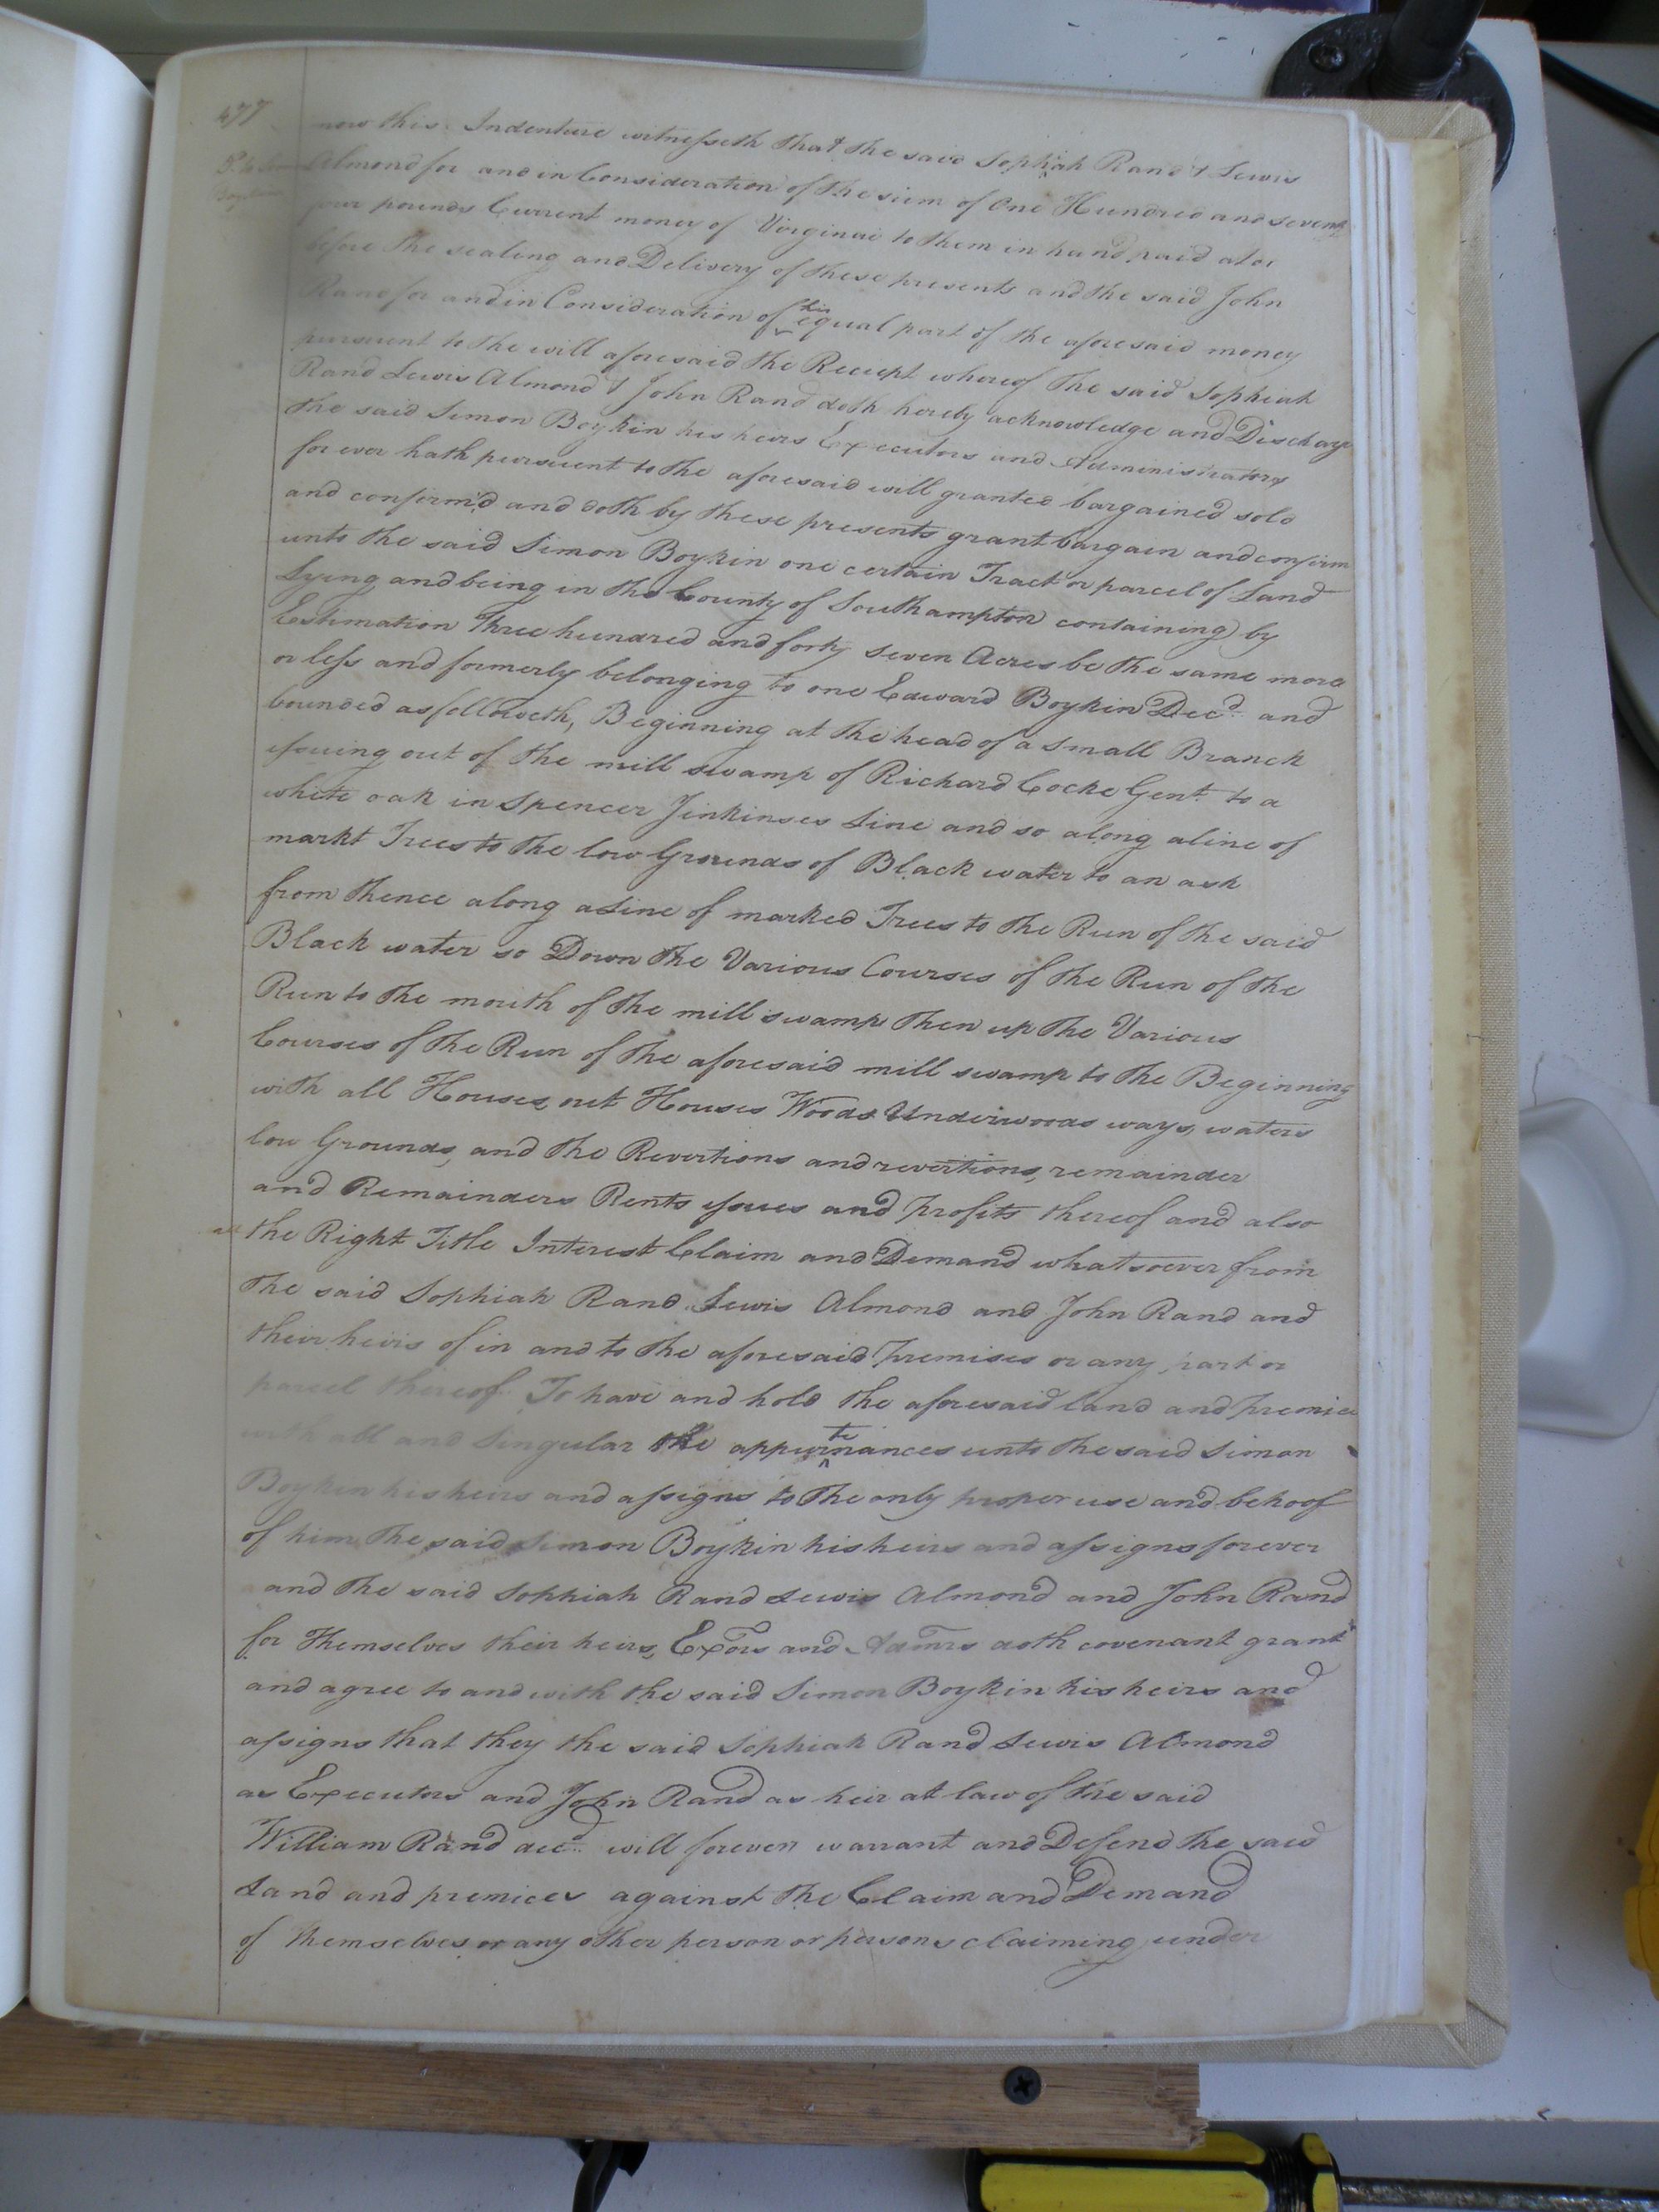 477
now this Indenture witnesseth that the said Sophiah Rand & Lewis
Almond for and in Consideration of the sum of One Hundred and seventy
four pounds Current money of Virginai to them in hand paid at or
before the sealing and Delivery of these presents and the said John
Rand for and in Consideration of his equal part of the aforesaid money
pursuent to the will aforesaid the Reciept whereof the said Sophiah
Rand Lewis Almond & John Rand doth hereby acknowledge and Discharge
the said Simon Boykin his heirs Executors and Administrators
for ever hath pursuent to the aforesaid will granted bargained sold
and confirm'd and doth by these presents grant bargain and confirm
unto the said Simon Boykin one certain Tract or parcel of Land
Lying and being in the County of Southampton containing by
Estimation Three hundred and forty seven Acres be the same more
or less and formerly belonging to one Edward Boykin Decd. and
bounded as followeth, Beginning at the head of a small Branch
issuing out of the mill swamp of Richard Cocke Gent. to a
white oak in Spencer Jinkinses Line and so along a line of
markt Trees to the low Grounds of Black water to an ash
from thence along a Line of marked Trees to the Run of the said
Black water so Down the Various Courses of the Run of the
Run to the mouth of the mill swamp then up the Various
Courses of the Run of the aforesaid mill swamp to the Beginning
with all Houses, out Houses Woods Underwoods ways, waters
low Grounds, and the Revertions and revertions, remainder
and Remainders Rents issues and profits thereof and also
all the Right Title Interest Claim and Demand whatsoever from
the said Sophiah Rand Lewis Almond and John Rand and
their heirs of in and to the aforesaid premises or any part or
parcel thereof To have and hold the aforesaid land and premices
with all and Singular the appurtenances unto the said Simon
Boykin his heirs and assigns to the only proper use and behoof
of him the said Simon Boykin his heirs and assigns forever
and the said Sophiah Rand Lewis Almond and John Rand
for Themselves their heirs, Exors and Admrs doth covenant grant
and agree to and with the said Simon Boykin his heirs and
assigns that they the said Sophiah Rand Lewis Almond
as Executors and John Rand as heir at law of the said
William Rand decd. will forever warrant and Defend the said
Land and premices against the Claim and Demand
of themselves or any other person or persons claiming under